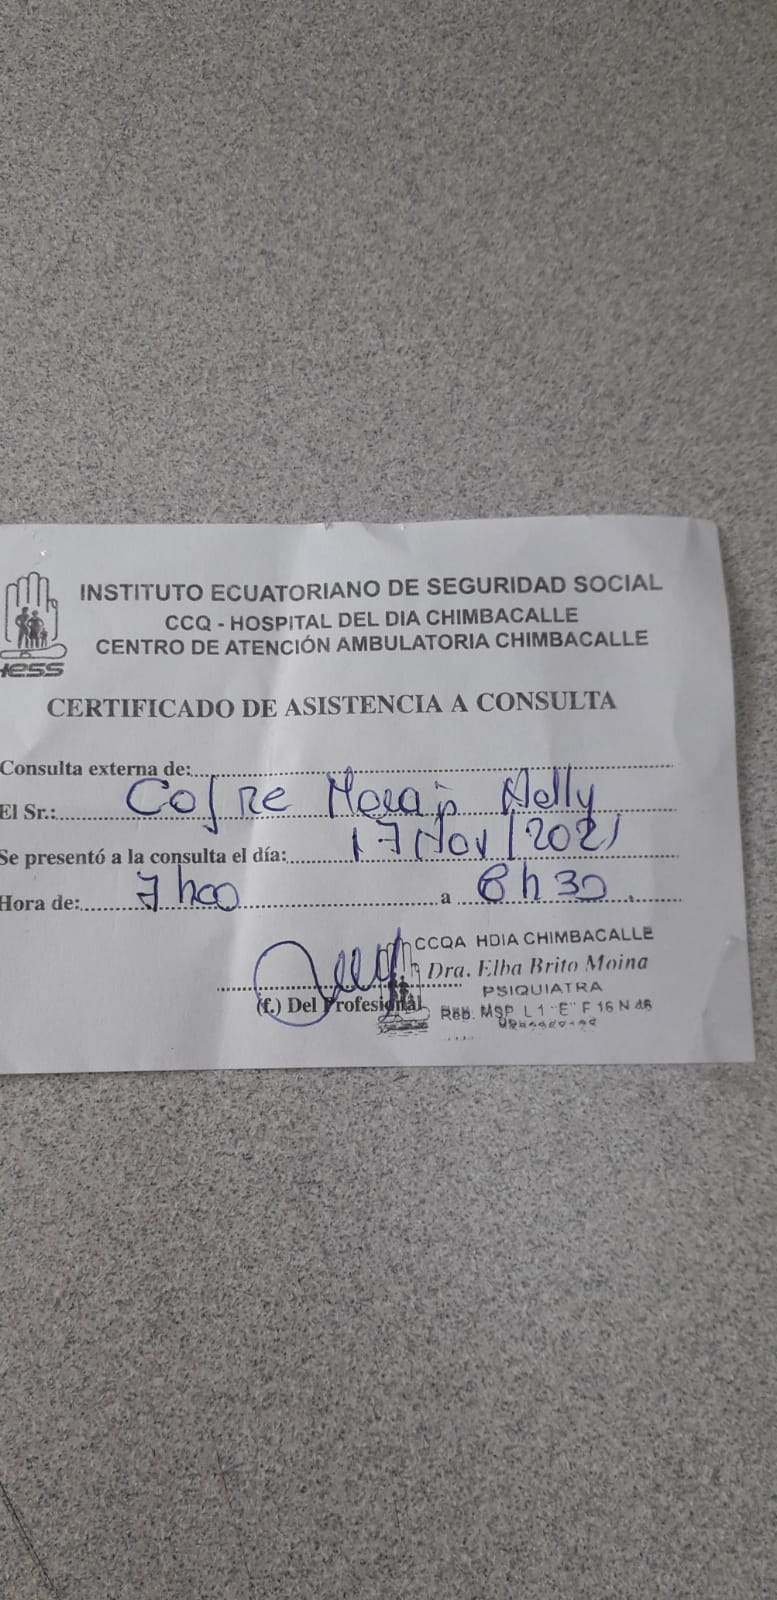 INSTITUTO ECUATORIANO DE SEGURIDAD SOCIAL
CCQ - HOSPITAL DEL DIA CHIMBACALLE
CENTRO DE ATENCIÓN AMBULATORIA CHIMBACALLE
IESS
CERTIFICADO DE ASISTENCIA A CONSULTA
Consulta externa de:
El Sr.: Cofre Nelly
Se presentó a la consulta el día: 17 Nov/2021
Hora de: 7h00 a 8h30.
CCQA HDIA CHIMBACALLE
Dra. Elba Brito Moina
PSIQUIATRA
(f.) Del Profesional
Reg. MSP. L 1 "E" F 16 N 46